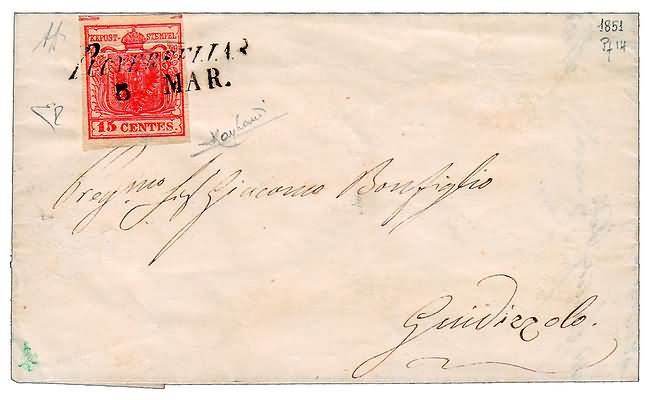 1851
Pf 14
KKPOST-STEMPEL
15 CENTES.
5 MAR.
Preg.mo Sig Giacomo Bonfiglio
Guidizzolo.